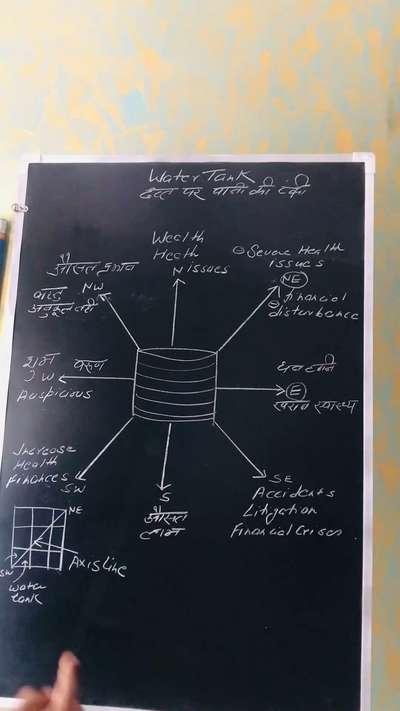 Water Tank
छत पर पानी की टंकी
Wealth
Heath
N issues
⊖ Severe Health
issues
NE
⊖ financial
disturbance
औसत प्रभाव
NW
वायु
अनुकूल नही
शुभ वरुण
W
Auspicious
धन हानि
E
खराब स्वास्थ्य
Increase
Health
Finances
SW
S
औसत
लाभ
SE
Accidents
Litigation
Financial Crises
NE
Axis Line
SW
Water
tank